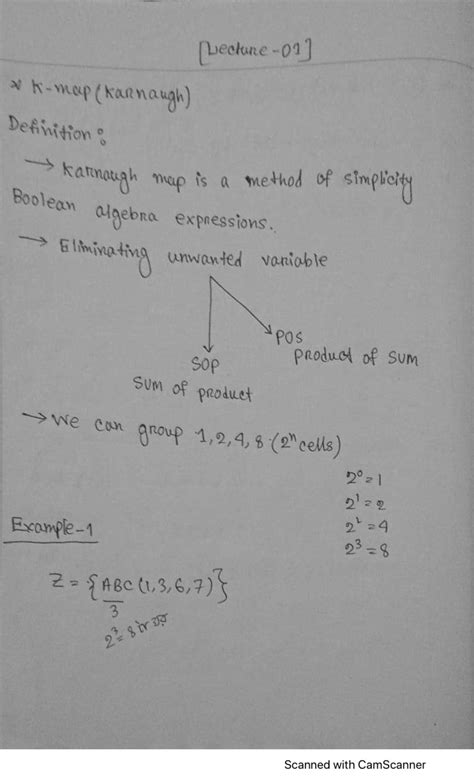 [Lecture-01]
* K-map (Karnaugh)
Definition :
→ Karnaugh map is a method of simplicity
Boolean algebra expressions.
→ Eliminating unwanted variable
SOP
Sum of product
POS
product of sum
→ We can group 1, 2, 4, 8 (2ⁿ cells)
2⁰ = 1
2¹ = 2
2² = 4
2³ = 8
Example-1
Z = {ABC (1, 3, 6, 7)}
3
2³ = 8
Scanned with CamScanner